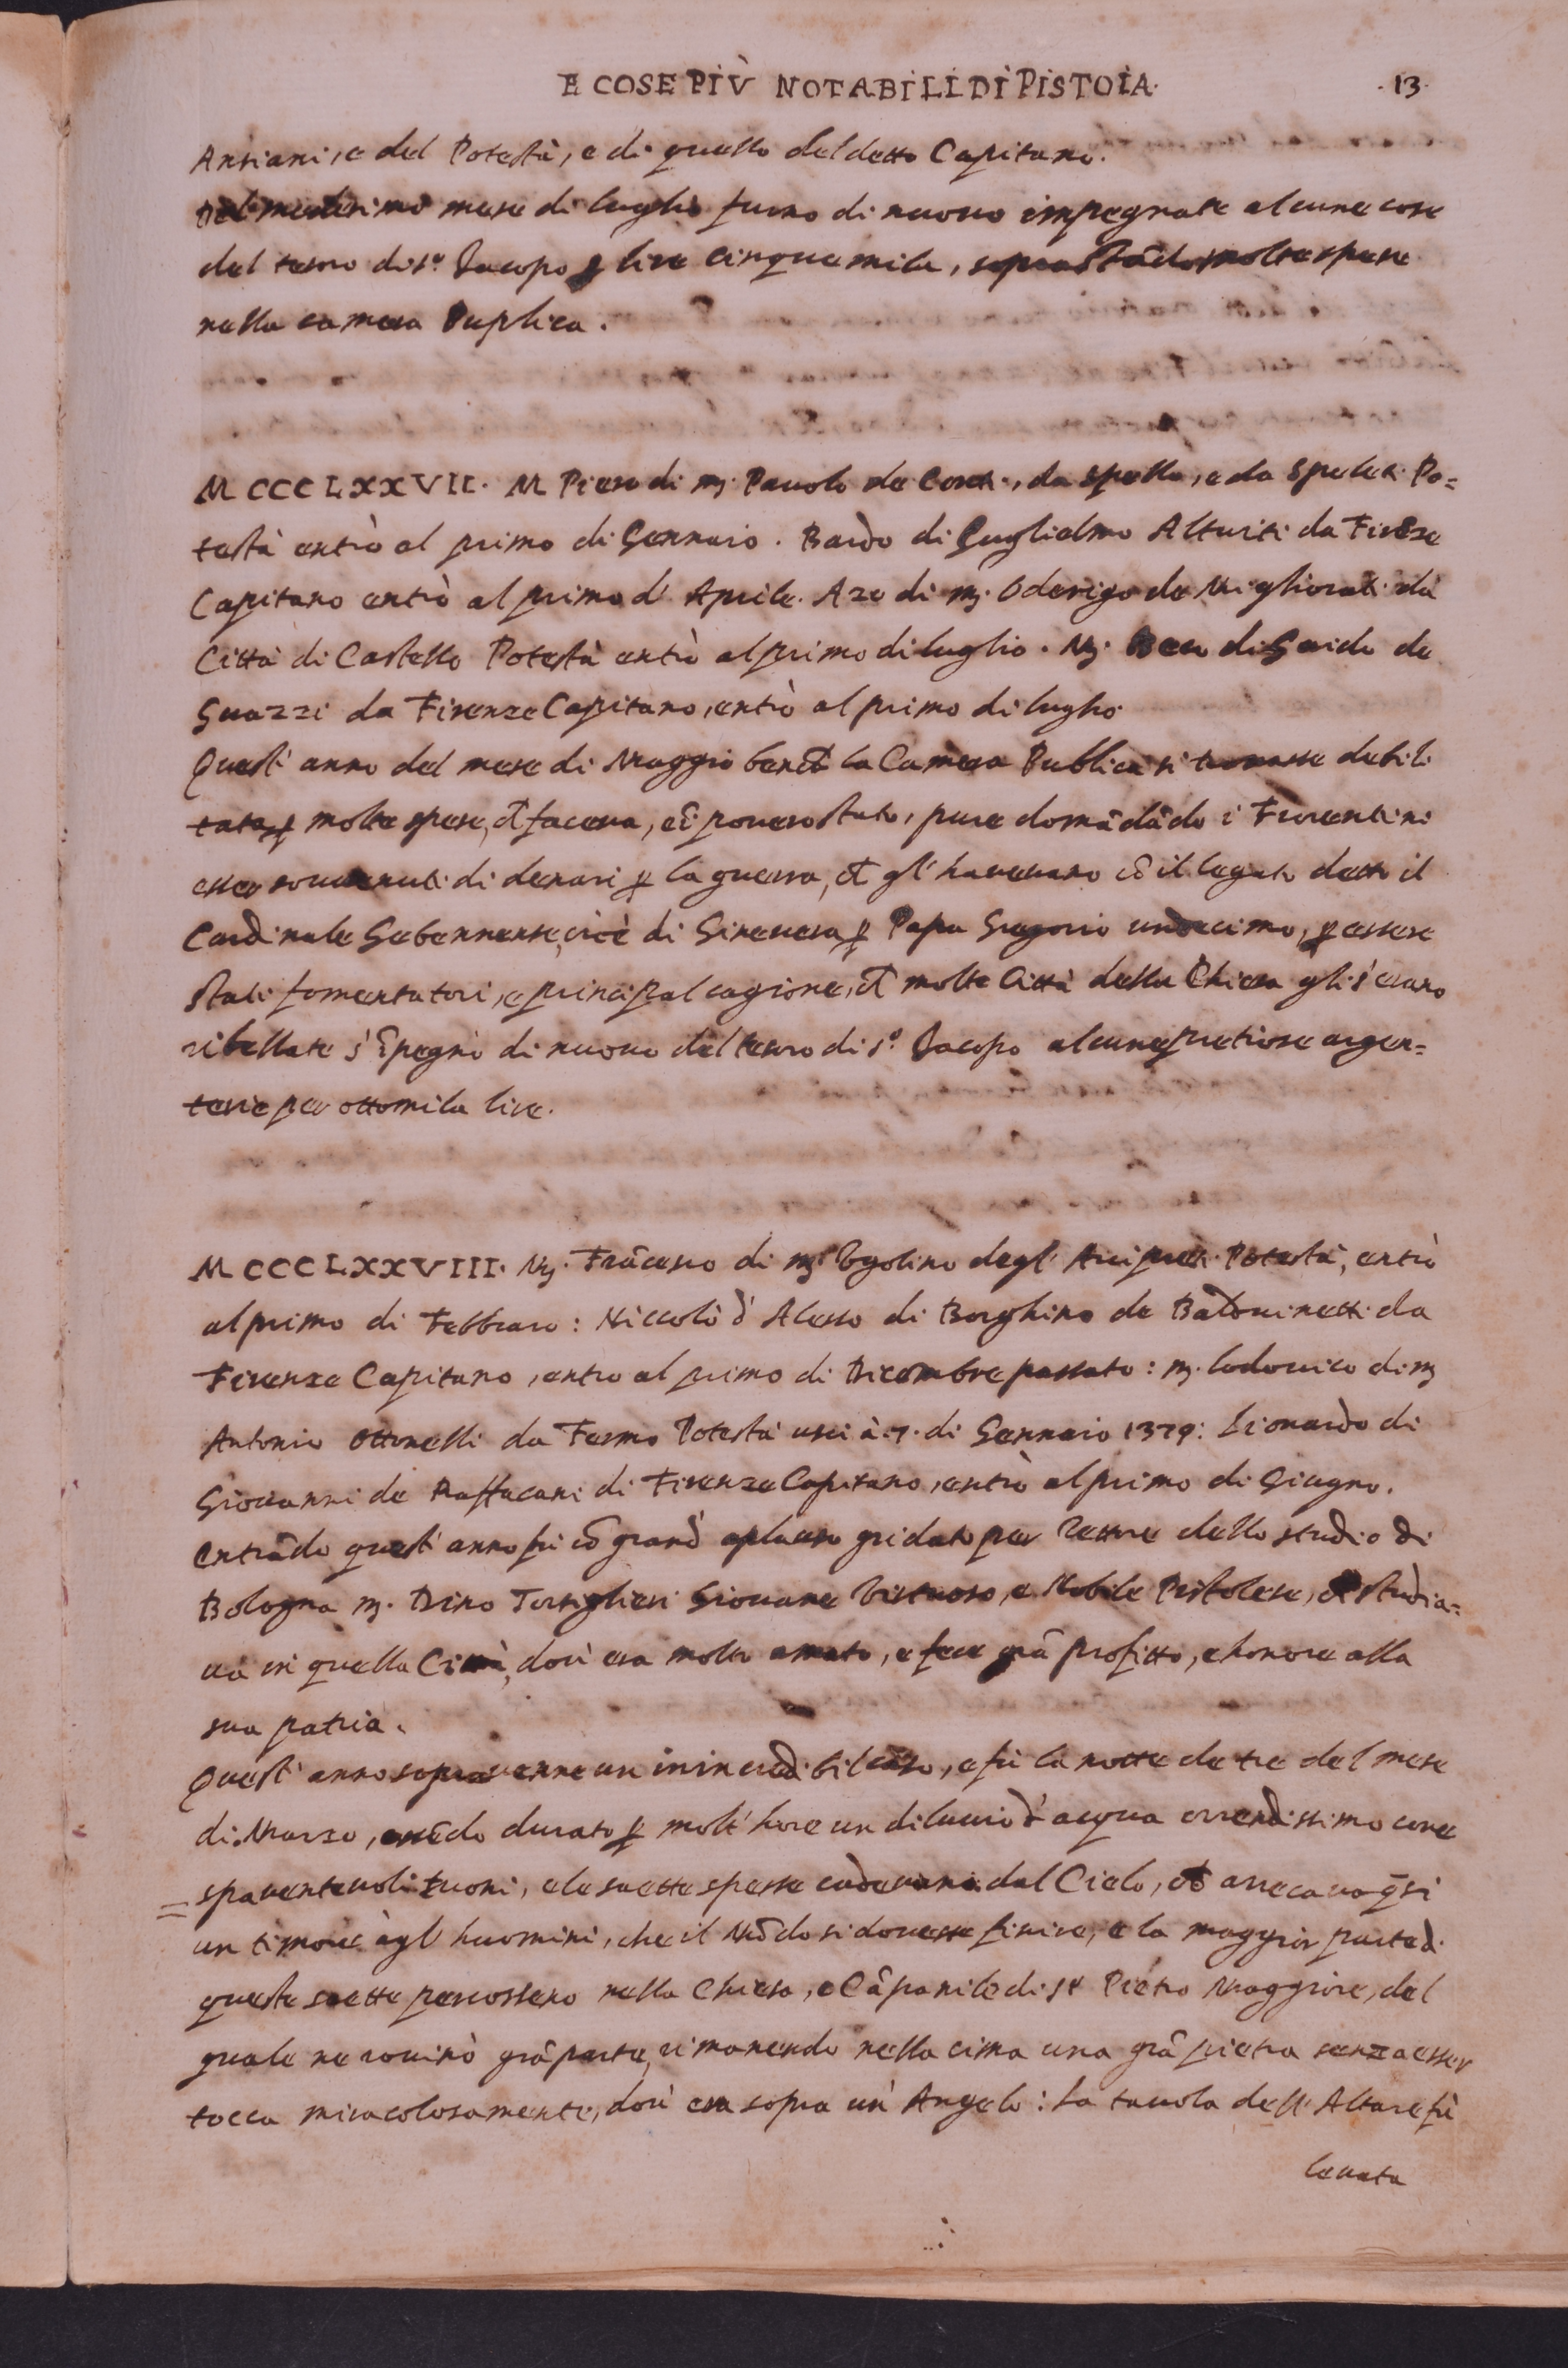 E COSE PIÙ NOTABILI DI PISTOIA. .13.
Antiani, e del Potestà, e di quello del detto Capitano.
Del medesimo mese di luglio furno di nuovo impegnate alcune cose
del tesoro di s.º Jacopo ꝑ lire cinque mila, soprastãdo molte spese
nella camera Puplica.
MCCCLXXVII. M Piero di mʒ. Pauolo de Conti, da Spello, e da Spuleti Po=
testà entrò al primo di Gennaio. Bardo di Guglielmo Altuiti da Firēze
Capitano entrò al primo d' Aprile. Azo di mʒ. Oderigo de Migliorati da
Città di Castello Potestà entrò al primo di luglio. Mʒ. Beco di Guido de
Guazzi da Firenze Capitano, entrò al primo di luglio
Quest' anno del mese di Maggio benchē la Camera Publica si trovasse debili
tata ꝑ molte spese, ch̄ faceva, e ī povero stato, pure domãdãdo i Fiorentini
esser souvenuti di denari ꝑ la guerra, ch̄ gl' havevano cō il legato detto il
Cardinale Gebennense, cioè di Ginevera ꝑ Papa Gregorio undecimo, ꝑ essere
stati fomentatori, e principal cagione, ch̄ molte Città della Chiesa gli s' erano
ribellate s' īpegnò di nuovo del tesoro di s.º Jacopo alcune pretiose argen=
terie per ottomila lire.
MCCCLXXVIII. Mʒ. Frãcesco di mʒ Ugolino degl' Arcipreti Potestà, entrò
al primo di Febbraro: Niccolò d' Alesso di Borghino de Baldovinetti da
Firenze Capitano, entro al primo di Dicembre passato: mʒ. Lodovico di mʒ
Antonio Ottonelli da Fermo Potestà uscì à .7. di Gennaio 1379: Lionardo di
Giovanni de Raffacani di Firenze Capitano, entrò al primo di Giugno.
Entrãdo quest' anno fù cō grand' aplauso gridato per Rettore dello studio di
Bologna mʒ. Dino Torsiglieri Giovane Virtuoso, e Nobile Pistolese, ch̄ studia=
va in quella Città, dov' era molto amato, e fece grã profitto, e honore alla
sua patria.
Quest' anno sopravenne un inincredibil caso, e fù la notte de tre del mese
di Marzo, essēdo durato ꝑ molt' hore un diluvio d' acqua orrendissimo con e
spaventevoli tuoni, e le saette spesse cadevano dal Cielo, ch̄ arrecavo q̄si
un timore àgl' huomini, che il Mōdo si dovesse finire, e la maggior parte di
queste saette percossero nella Chiesa, e Cãpanile di sº Pietro Maggiore, del
quale ne rovinò grã parte, rimanendo nella cima una grã pietra senza esser
tocca miracolosamente, dov' era sopra un' Angelo: la tavola dell' Altare fù
levata